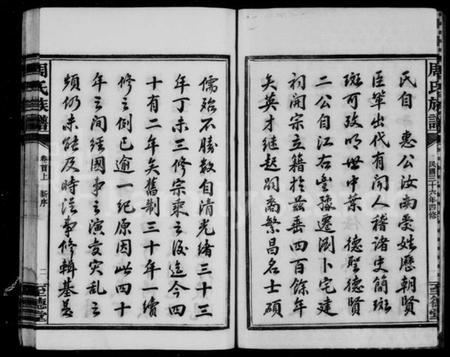 周氏族譜
民國三十六年四修
至德堂
氏自 惠公汝南受姓歷朝賢
臣輩出代有聞人稽諸史簡斑
斑可攷明世中葉 德聖德賢
二公自江右豐豫遷浏卜宅建
祠開宗立籍於茲垂四百餘年
矣英才繼起嗣裔繁昌名士碩
儒殆不勝數自清光緒三十三
年丁未三修宗乘之後迄今四
十有二年矣舊制三十年一續
修之例已逾一紀原因此四十
年之間經國事之演變災亂之
頻仍未能及時從事修輯基
周氏族譜
卷首上 新序
二
至德堂